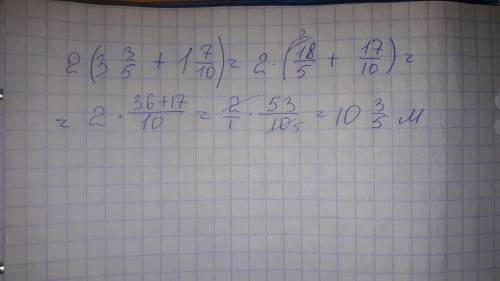 2(3 3/5 + 1 7/10) = 2 · (²18/5 + 17/10) =
= 2 · 36+17/10 = 2/1 · 53/10₅ = 10 3/5 м